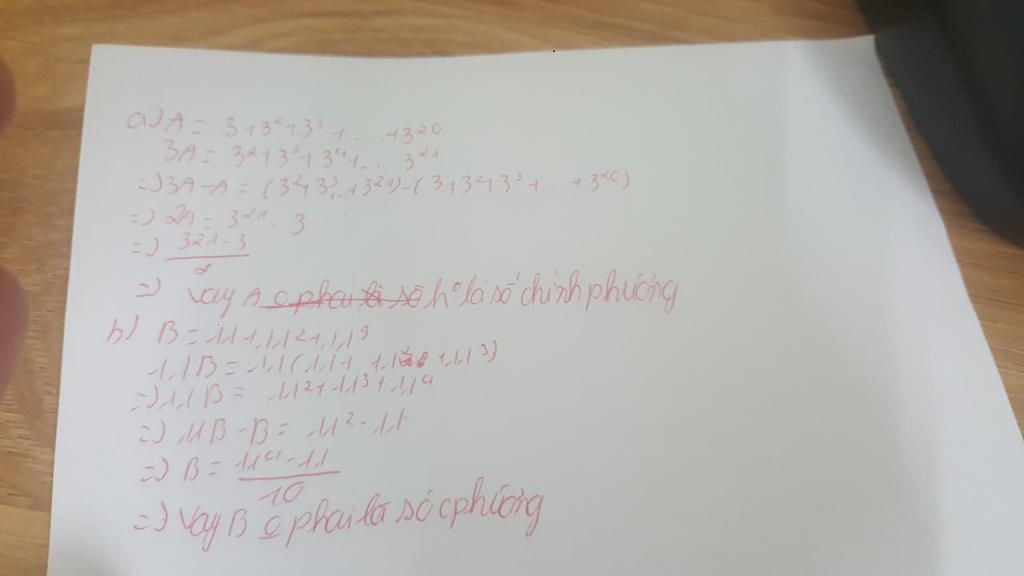 a) A = 3+3²+3³+...+3²⁰
3A = 3²+3³+3⁴+... 3²¹
=> 3A-A = (3²+3³+...+3²¹)-(3+3²+3³+...+3²⁰)
=> 2A = 3²¹. 3
=> 321-3
2
=> Vay A h° là số chính phướng
b) B = 11+11²+11³
11B = 11(11+ 11² +11³)
=> 11B = 11²+11³+11⁴
=> 11B-B = 11²-11
=> B = 11⁴-11
10
=> Vay B phai là số cphướng